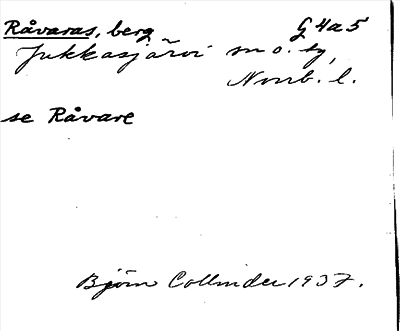 Råvaras, berg G 4a5
Jukkasjärvi sn o. tg,
Norrb. l.
se Råvare
Björn Collinder 1937.